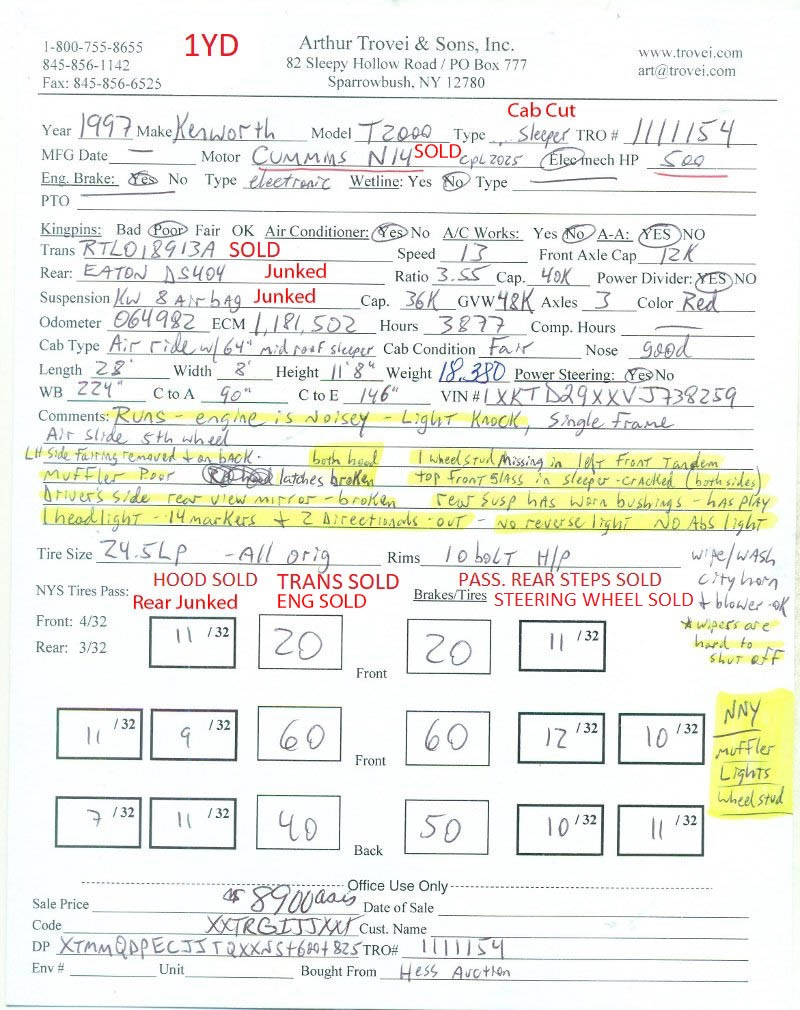 1-800-755-8655 1YD Arthur Trovei & Sons, Inc. www.trovei.com
845-856-1142 82 Sleepy Hollow Road / PO Box 777 art@trovei.com
Fax: 845-856-6525 Sparrowbush, NY 12780
Cab Cut
Year 1997 Make Kenworth Model T2000 Type Sleeper TRO # 1111154
MFG Date — Motor CUMMINS N14 SOLD CPL 2025 Elec mech HP 500
Eng. Brake: Yes No Type electronic Wetline: Yes No Type
PTO
Kingpins: Bad Poor Fair OK Air Conditioner: Yes No A/C Works: Yes No A-A: YES NO
Trans RTLO18913A SOLD Speed 13 Front Axle Cap 12K
Rear: EATON DS404 Junked Ratio 3.55 Cap. 40K Power Divider: YES NO
Suspension KW 8 Airbag Junked Cap. 36K GVW 48K Axles 3 Color Red
Odometer 064982 ECM 1,181,502 Hours 3877 Comp. Hours —
Cab Type Air ride w/ 64" mid roof sleeper Cab Condition Fair Nose good
Length 28' Width 8' Height 11'8" Weight 18,380 Power Steering: Yes No
WB 224" C to A 90" C to E 146" VIN # 1XKTD29XXVJ738259
Comments: RUNS - engine is NOISEY - Light KNOCK, Single Frame
Air slide 5th wheel
LH side Fairing removed + on back. both hood 1 wheel stud Missing in left Front Tandem
Muffler Poor latches broken top Front Glass in sleeper - cracked (both sides)
Driver's side rear view mirror - broken rear susp has worn bushings - has play
1 headlight - 14 markers + 2 Directionals - out - no reverse light NO Abs light
Tire Size 24.5LP - All orig Rims 10 bolt H/P
wipe/wash
city horn
+ blower - ok
* wipers are
hard to
shut off
HOOD SOLD TRANS SOLD PASS. REAR STEPS SOLD
NYS Tires Pass: Rear Junked ENG SOLD Brakes/Tires STEERING WHEEL SOLD
Front: 4/32
Rear: 3/32
11 /32 20 Front 20 11 /32
11 /32 9 /32 60 Front 60 12 /32 10 /32
NNY
Muffler
Lights
wheel stud
7 /32 11 /32 40 Back 50 10 /32 11 /32
Office Use Only
Sale Price $8900 asis Date of Sale
Code XXTRGIJJXXT Cust. Name
DP XTMMQDPECJJTQXXNS+600+825 TRO# 1111154
Env # Unit Bought From Hess Auction